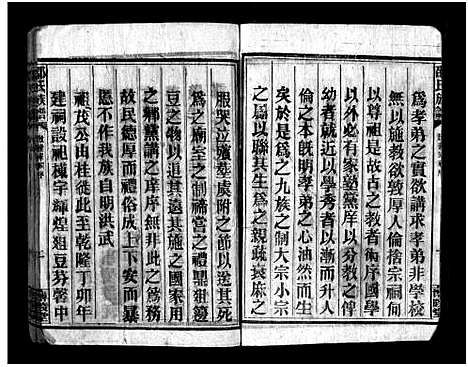 為孝弟之實欲講求孝弟非學校
無以施教欲敦厚人倫捨宗祠何
以尊祖是故古之教者術序國學
以外必有家塾黨庠以俾
幼者就近以學秀者以漸而升人
倫之本旣明孝弟之心油然而生
矣於是以為九族之制大宗小宗
之屬以聯其生為之親疏衰麻之
服哭泣殯葬虞附之節以送其死
為之廟室之制禘嘗之禮鼎俎籩
豆之物以追其遠其施之國家用
之鄉黨講之庠序無以此為務
故民德厚而禮俗成上下安而暴
慝不作我族自明洪武
祖茂公山桂徙此至乾隆丁卯年
建祠設祀棟宇輝煌俎豆芬馨中